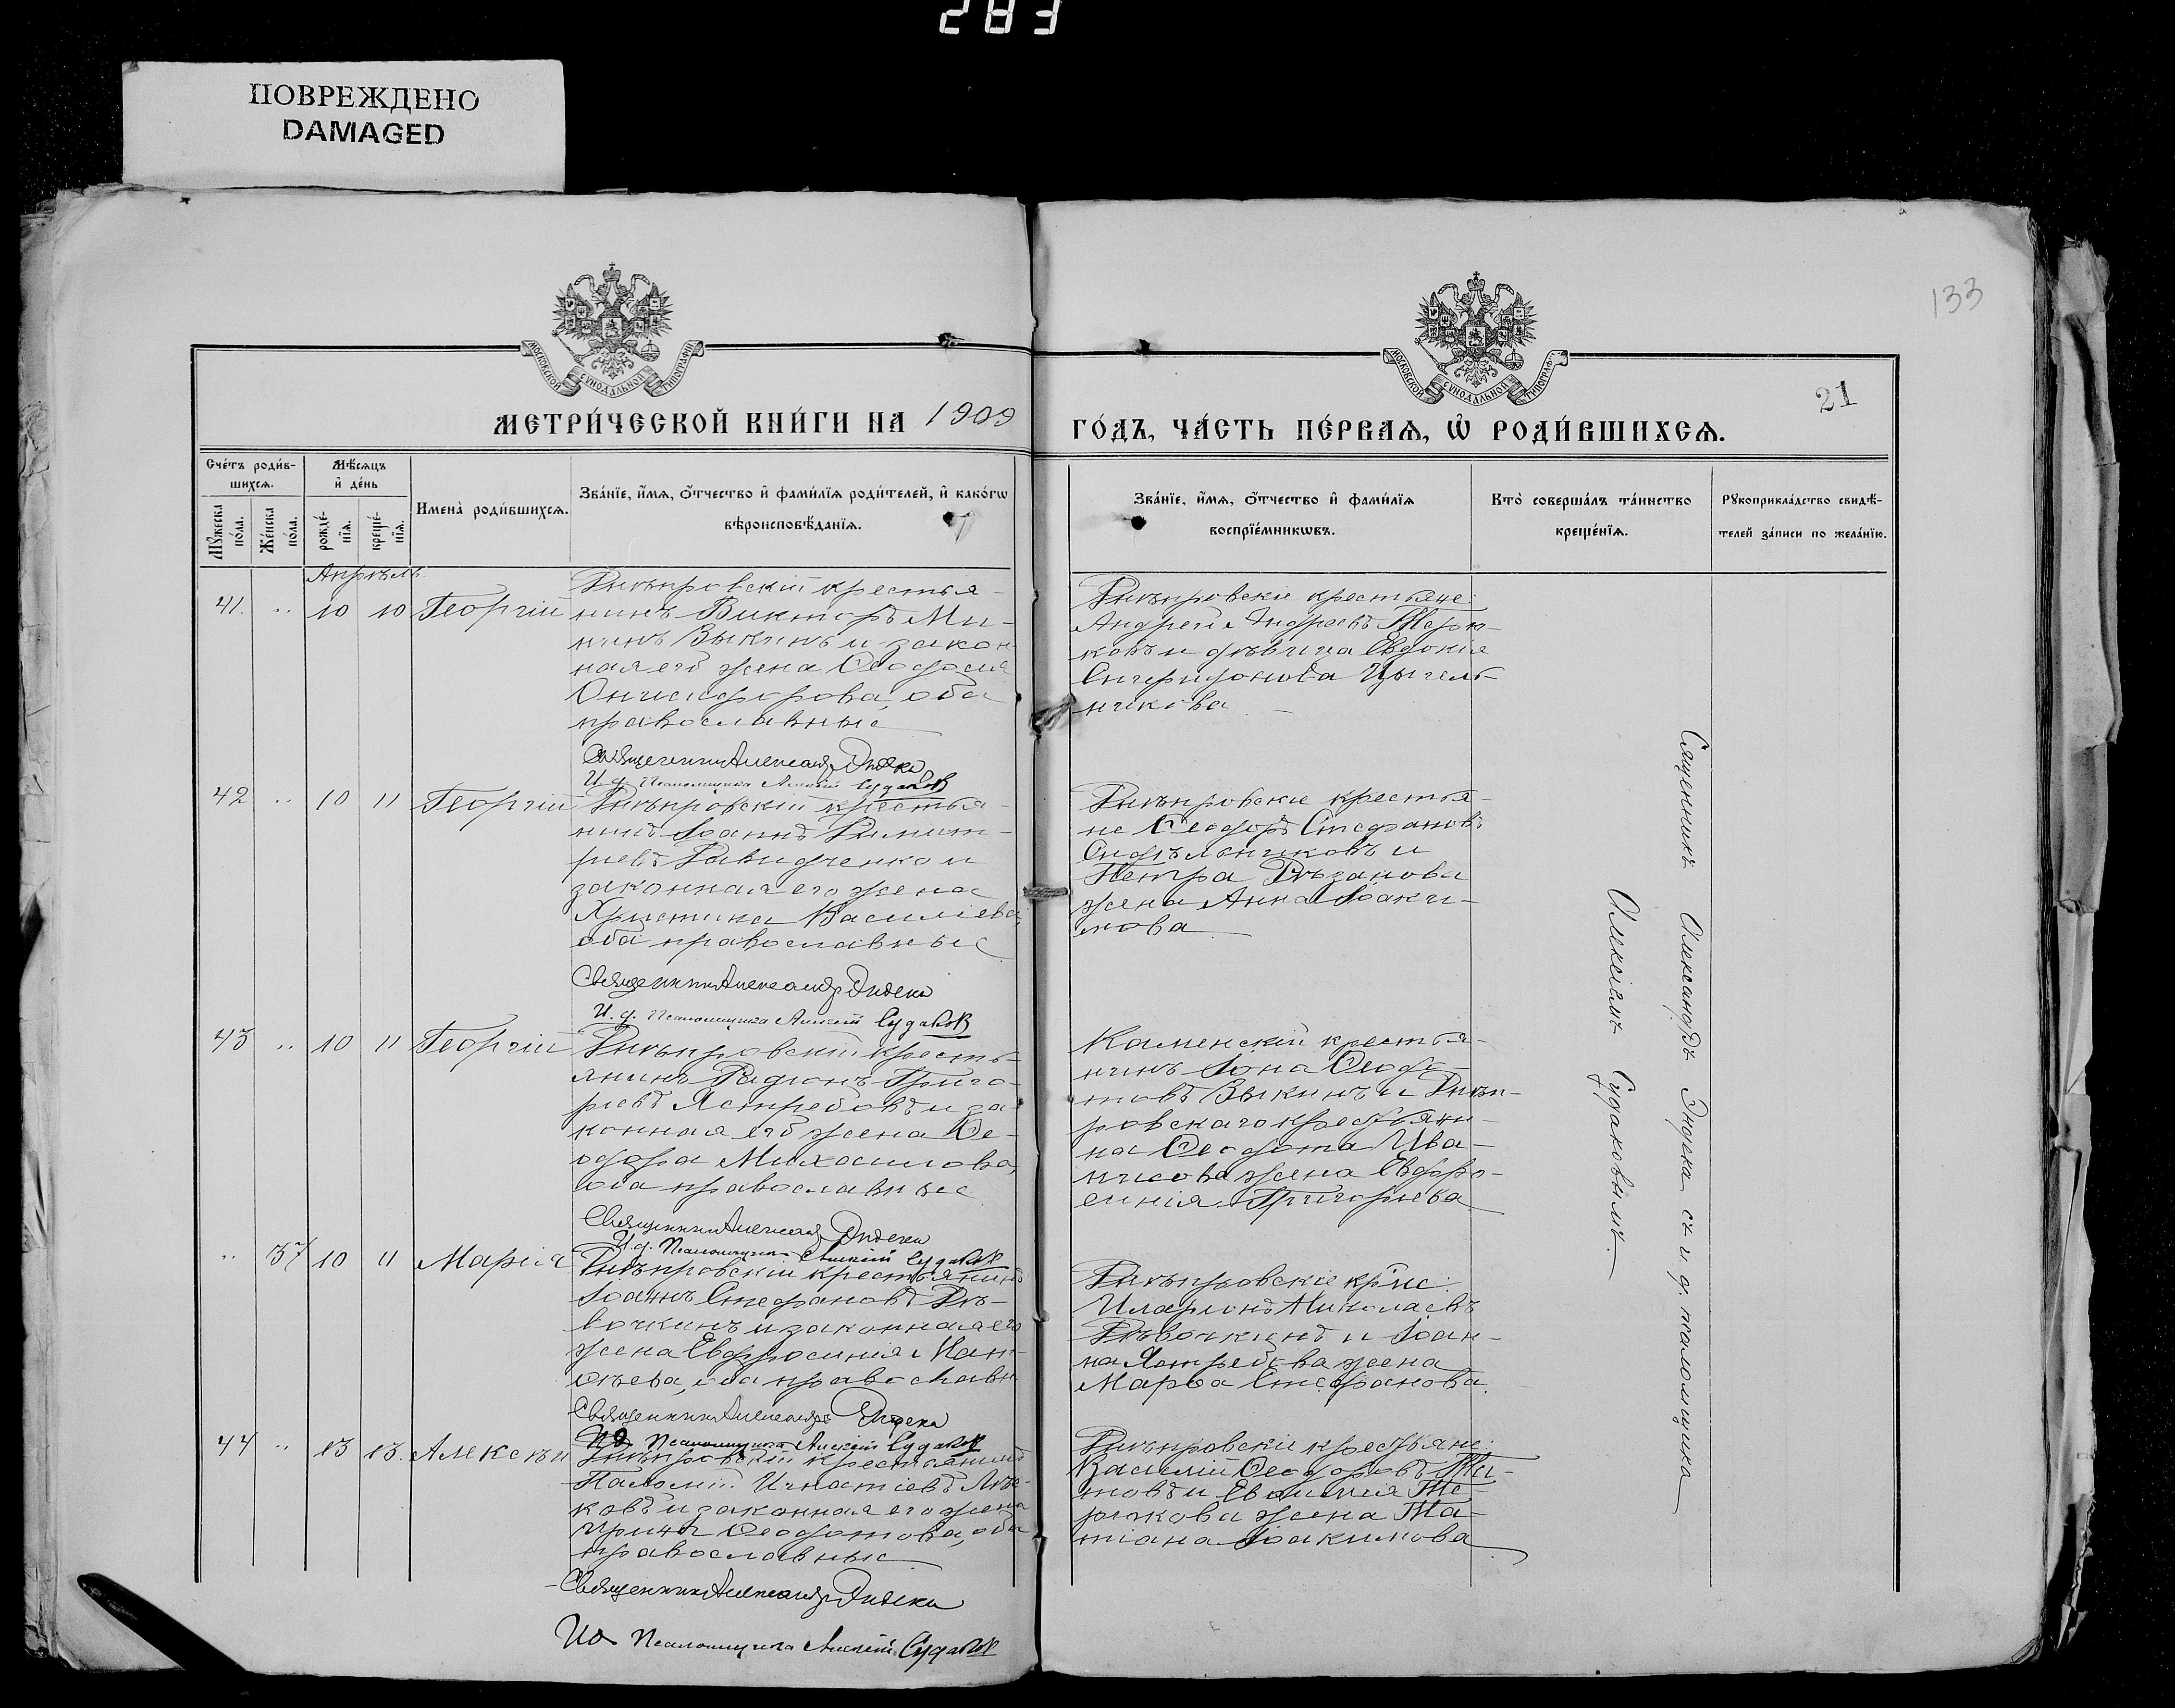 283
ПОВРЕЖДЕНО
DAMAGED
133
21
МОСКОВСКОЙ СѴНОДАЛЬНОЙ ТИПОГРАФІИ
МОСКОВСКОЙ СѴНОДАЛЬНОЙ ТИПОГРАФ
МЕТРИ́ЧЕСКОЙ КНИ́ГИ НА 1909
ГО́ДЪ, ЧА́СТЬ ПЕ́РВАѦ, Ѡ҆ РОДИ́ВШИХСѦ.
Сче́тъ роди́в-
шихсѧ.
Мꙋ́жеска по́ла.
Же́нска по́ла.
Мѣ́сѧцъ
и҆ де́нь
рожде́-
нїѧ.
креще́-
нїѧ.
Имена̀ роди́вшихсѧ.
Зва́нїе, и҆́мѧ, ѻ҆́тчество и҆ фами́лїѧ роди́телей, и҆ како́гѡ
вѣроисповѣ́данїѧ.
Зва́нїе, и҆́мѧ, ѻ҆́тчество и҆ фами́лїѧ
воспрїе́мникѡвъ.
Кто̀ соверша́лъ та́инство
креще́нїѧ.
Рꙋкоприкла́дство свидѣ́-
телей за́писи по жела́нїю.
Апрѣль
41. " 10 10 Георгій
Днѣпровскій крестья-
нинъ Викторъ Ми-
нинъ Выкинъ и закон-
ная его жена Ѳеодосія
Онисифорова, оба
православные
Священникъ Александръ Дидека
И. д. Псаломщика Алексій Судаков
Днѣпровскіе крестьяне:
Андрей Андреевъ Терю-
ковъ и дѣвица Евдокія
Спиридонова
никова
42 " 10 11 Георгій
Днѣпровскій крестья-
нинъ Іоаннъ Димит-
ріевъ Давидченко и
законная его жена
Христина Василіева,
оба православные
Священникъ Александръ Дидека
И. д. Псаломщика Алексій Судаков
Днѣпровскіе крестья-
не Ѳеодоръ Стефановъ
Сидѣльниковъ и
Петра Рѣзанова
жена Анна Іоаки-
мова
43 " 10 11 Георгій
Днѣпровскій кресть-
янинъ Родіонъ Григо-
ріевъ Ястребовъ и за-
конная его жена Ѳе-
одора Михаилова,
оба православные
Священникъ Александръ Дидека
И. д. Псаломщика Алексій Судаков
Каменскій крестья-
нинъ Іона Ѳеодо-
товъ Выкинъ и Днѣп-
ровскаго крестьяни-
на Ѳеодота Ива-
нисова жена Евфро-
синія Григорьева
" 37 10 11 Марія
Днѣпровскій крестьянинъ
Іоаннъ Стефановъ Дѣ-
вочкинъ и законная его
жена Евфросинія Мат-
ѳѣева, оба православн
Священникъ Александръ Дидека
ИД Псаломщика Алексій Судаков
Днѣпровскіе кр'не:
Иларіонъ Николаевъ
Дѣвочкинъ и Іоан-
на Ястребова жена
Марѳа Стефанова.
44 " 13 13. Алексѣй
Днѣпровскій крестьянинъ
Игнатіевъ
ковъ и законная его жена
Ирина Ѳеодотова, оба
православные
Священникъ Александръ Дидека
ИД Псаломщика Алексій Судаков
Днѣпровскіе крестьяне:
Василій Ѳеодоровъ Ти-
товъ и Евѳимія Те-
рюкова жена Та-
тіана Іоакимова
Священникъ Александръ Дидека съ и. д. псаломщика
Алексіемъ Судаковымъ.